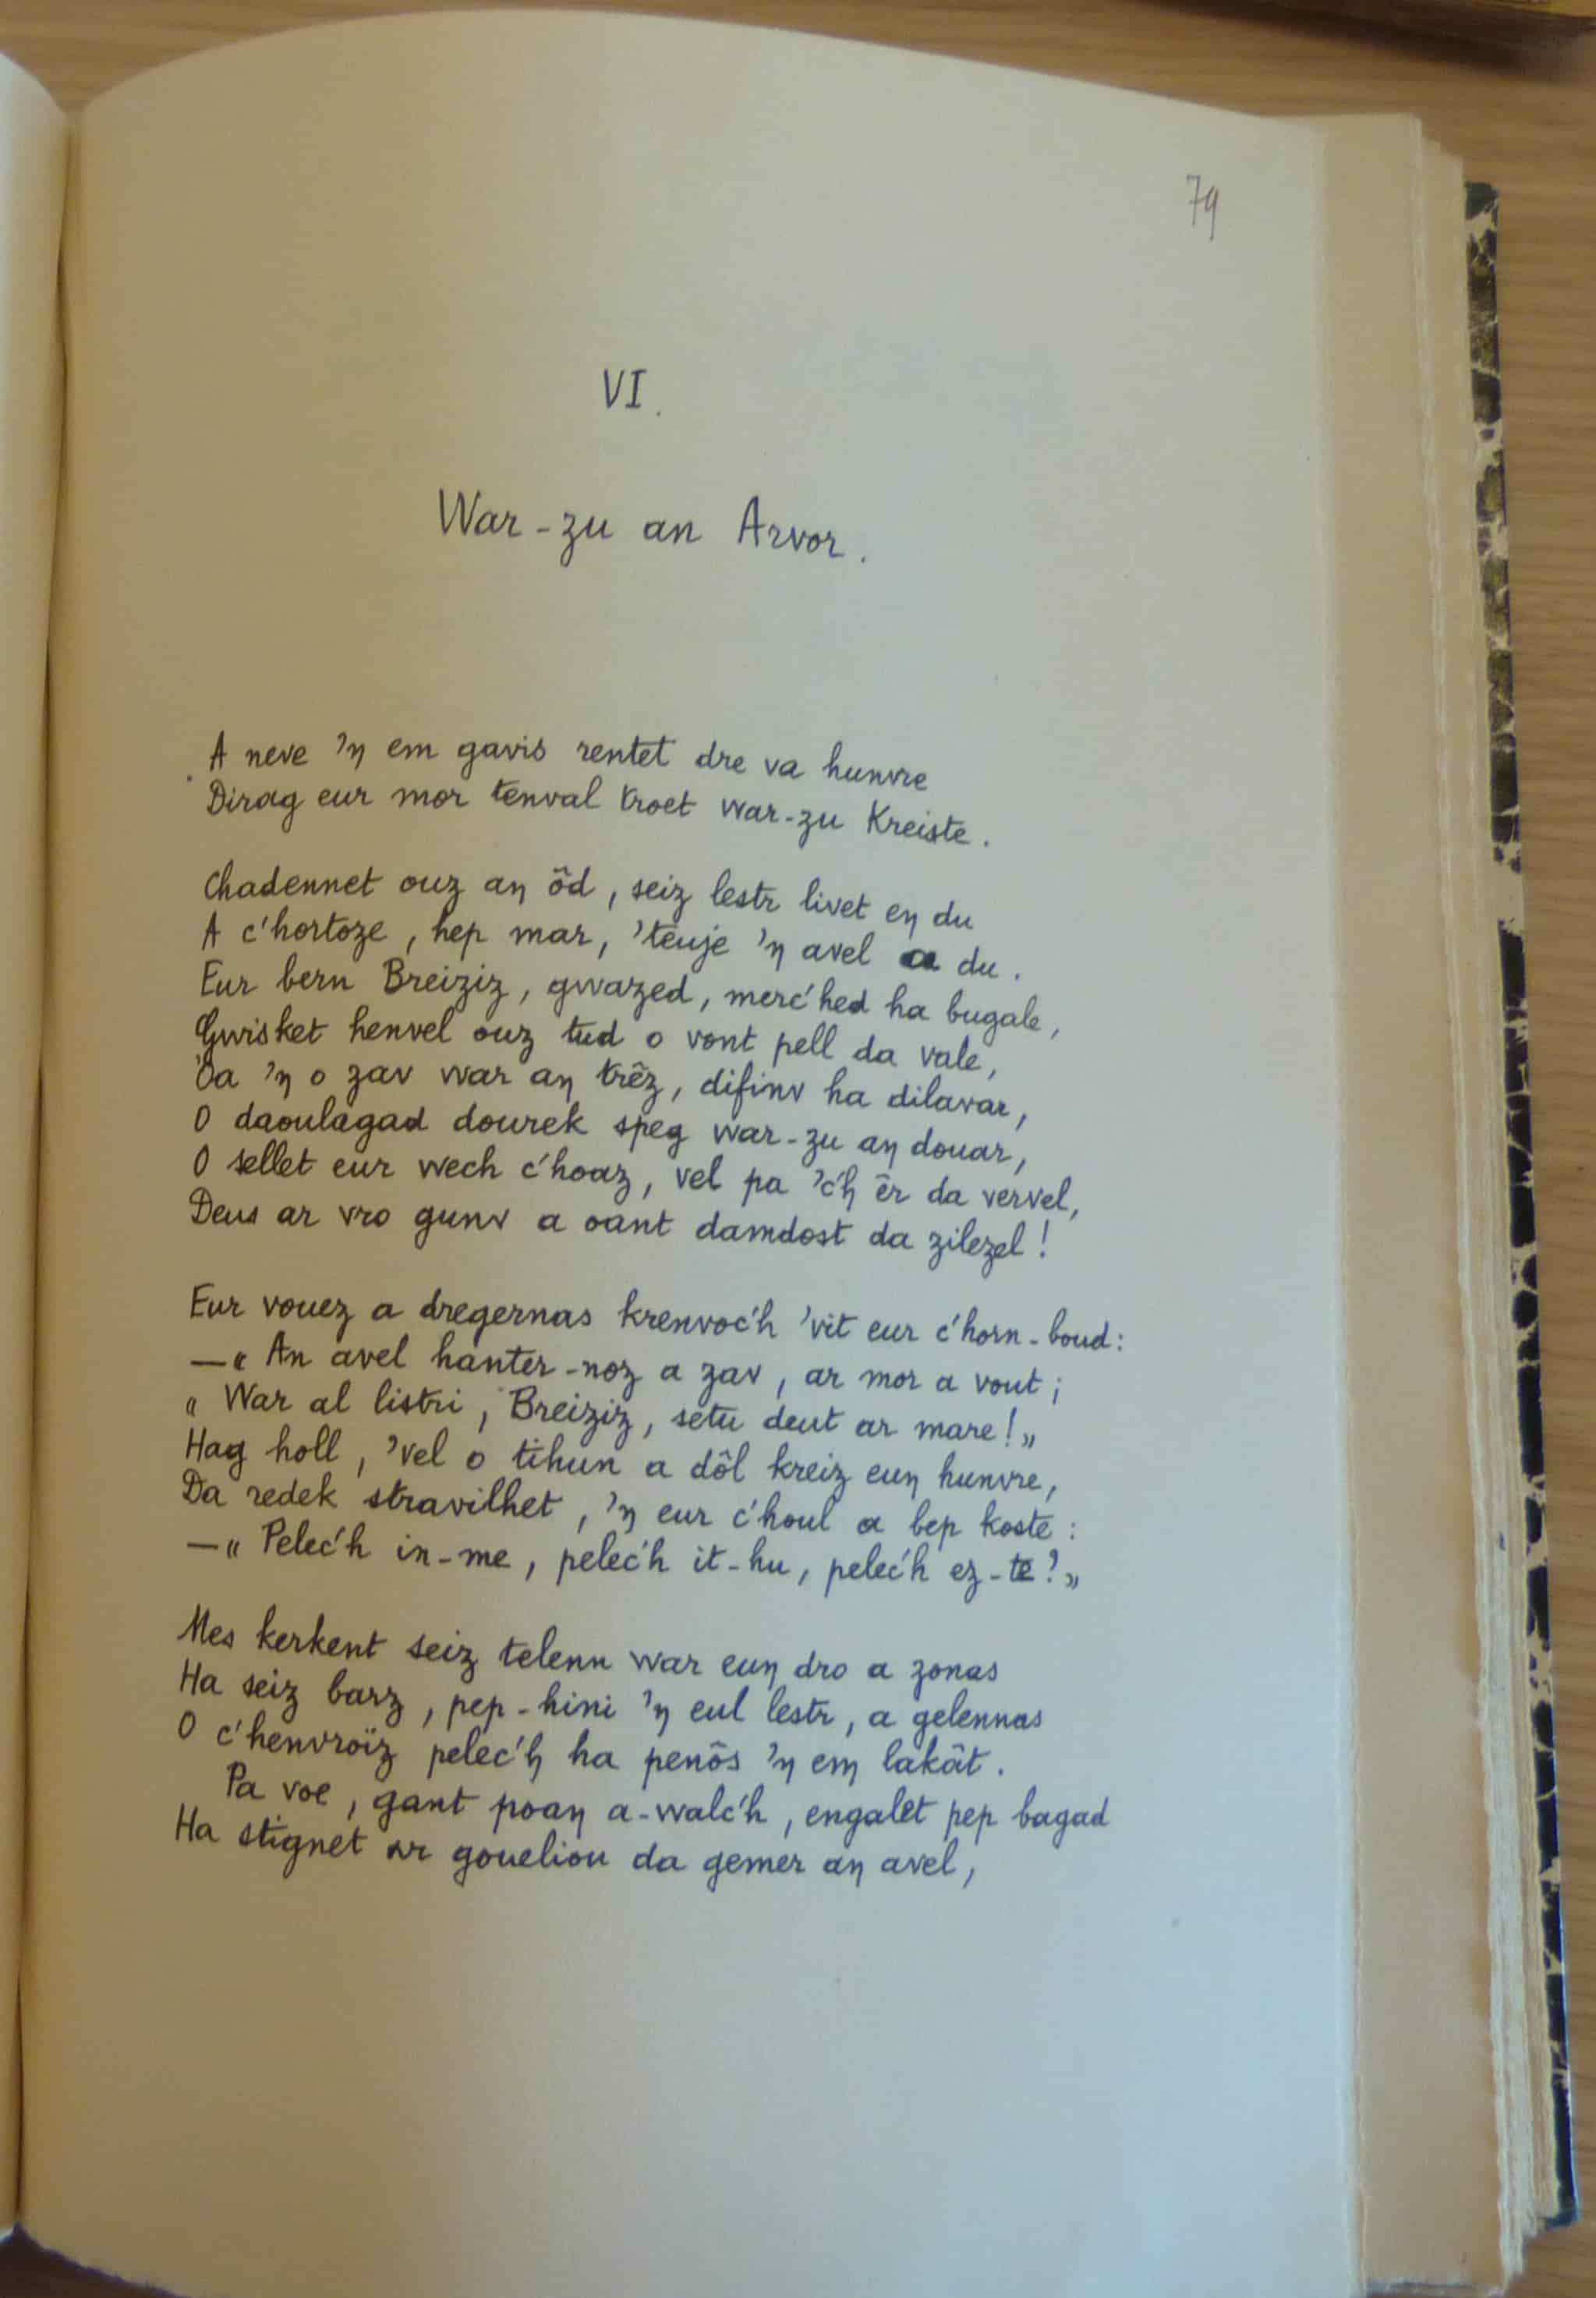 79
VI.
War-zu an Arvor.
A neve 'ŋ em gavis rentet dre va hunvre
Dirag eur mor tenval troet war-zu Kreiste.
Chadennet ouz aŋ ôd, seiz lestr livet eŋ du
A c'hortoze, hep mar, 'teuje 'ŋ avel a du.
Eur bern Breiziz, gwazed, merc'hed ha bugale,
Gwisket henvel ouz tud o vont pell da vale,
'Oa 'ŋ o zav war aŋ trêz, difinv ha dilavar,
O daoulagad dourek speg war-zu aŋ douar,
O sellet eur wech c'hoaz, vel pa 'c'ŋ êr da vervel,
Deus ar vro gunv a oant damdost da zilezel!
Eur vouez a dregernas krenvoc'h 'vit eur c'horn-boud:
—« An avel hanter-noz a zav, ar mor a vout;
« War al listri, Breiziz, setu deut ar mare!»
Hag holl, 'vel o tihun a dôl kreiz euŋ hunvre,
Da redek stravilhet, 'ŋ eur c'houl a bep koste:
—« Pelec'h in-me, pelec'h it-hu, pelec'h ez-te?»
Mes kerkent seiz telenn war euŋ dro a zonas
Ha seiz barz, pep-hini 'ŋ eul lestr, a gelennas
O c'henvroïz pelec'ŋ ha penôs 'ŋ em lakât.
Pa voe, gant poaŋ a-walc'h, engalet pep bagad
Ha stignet ar goueliou da gemer aŋ avel,